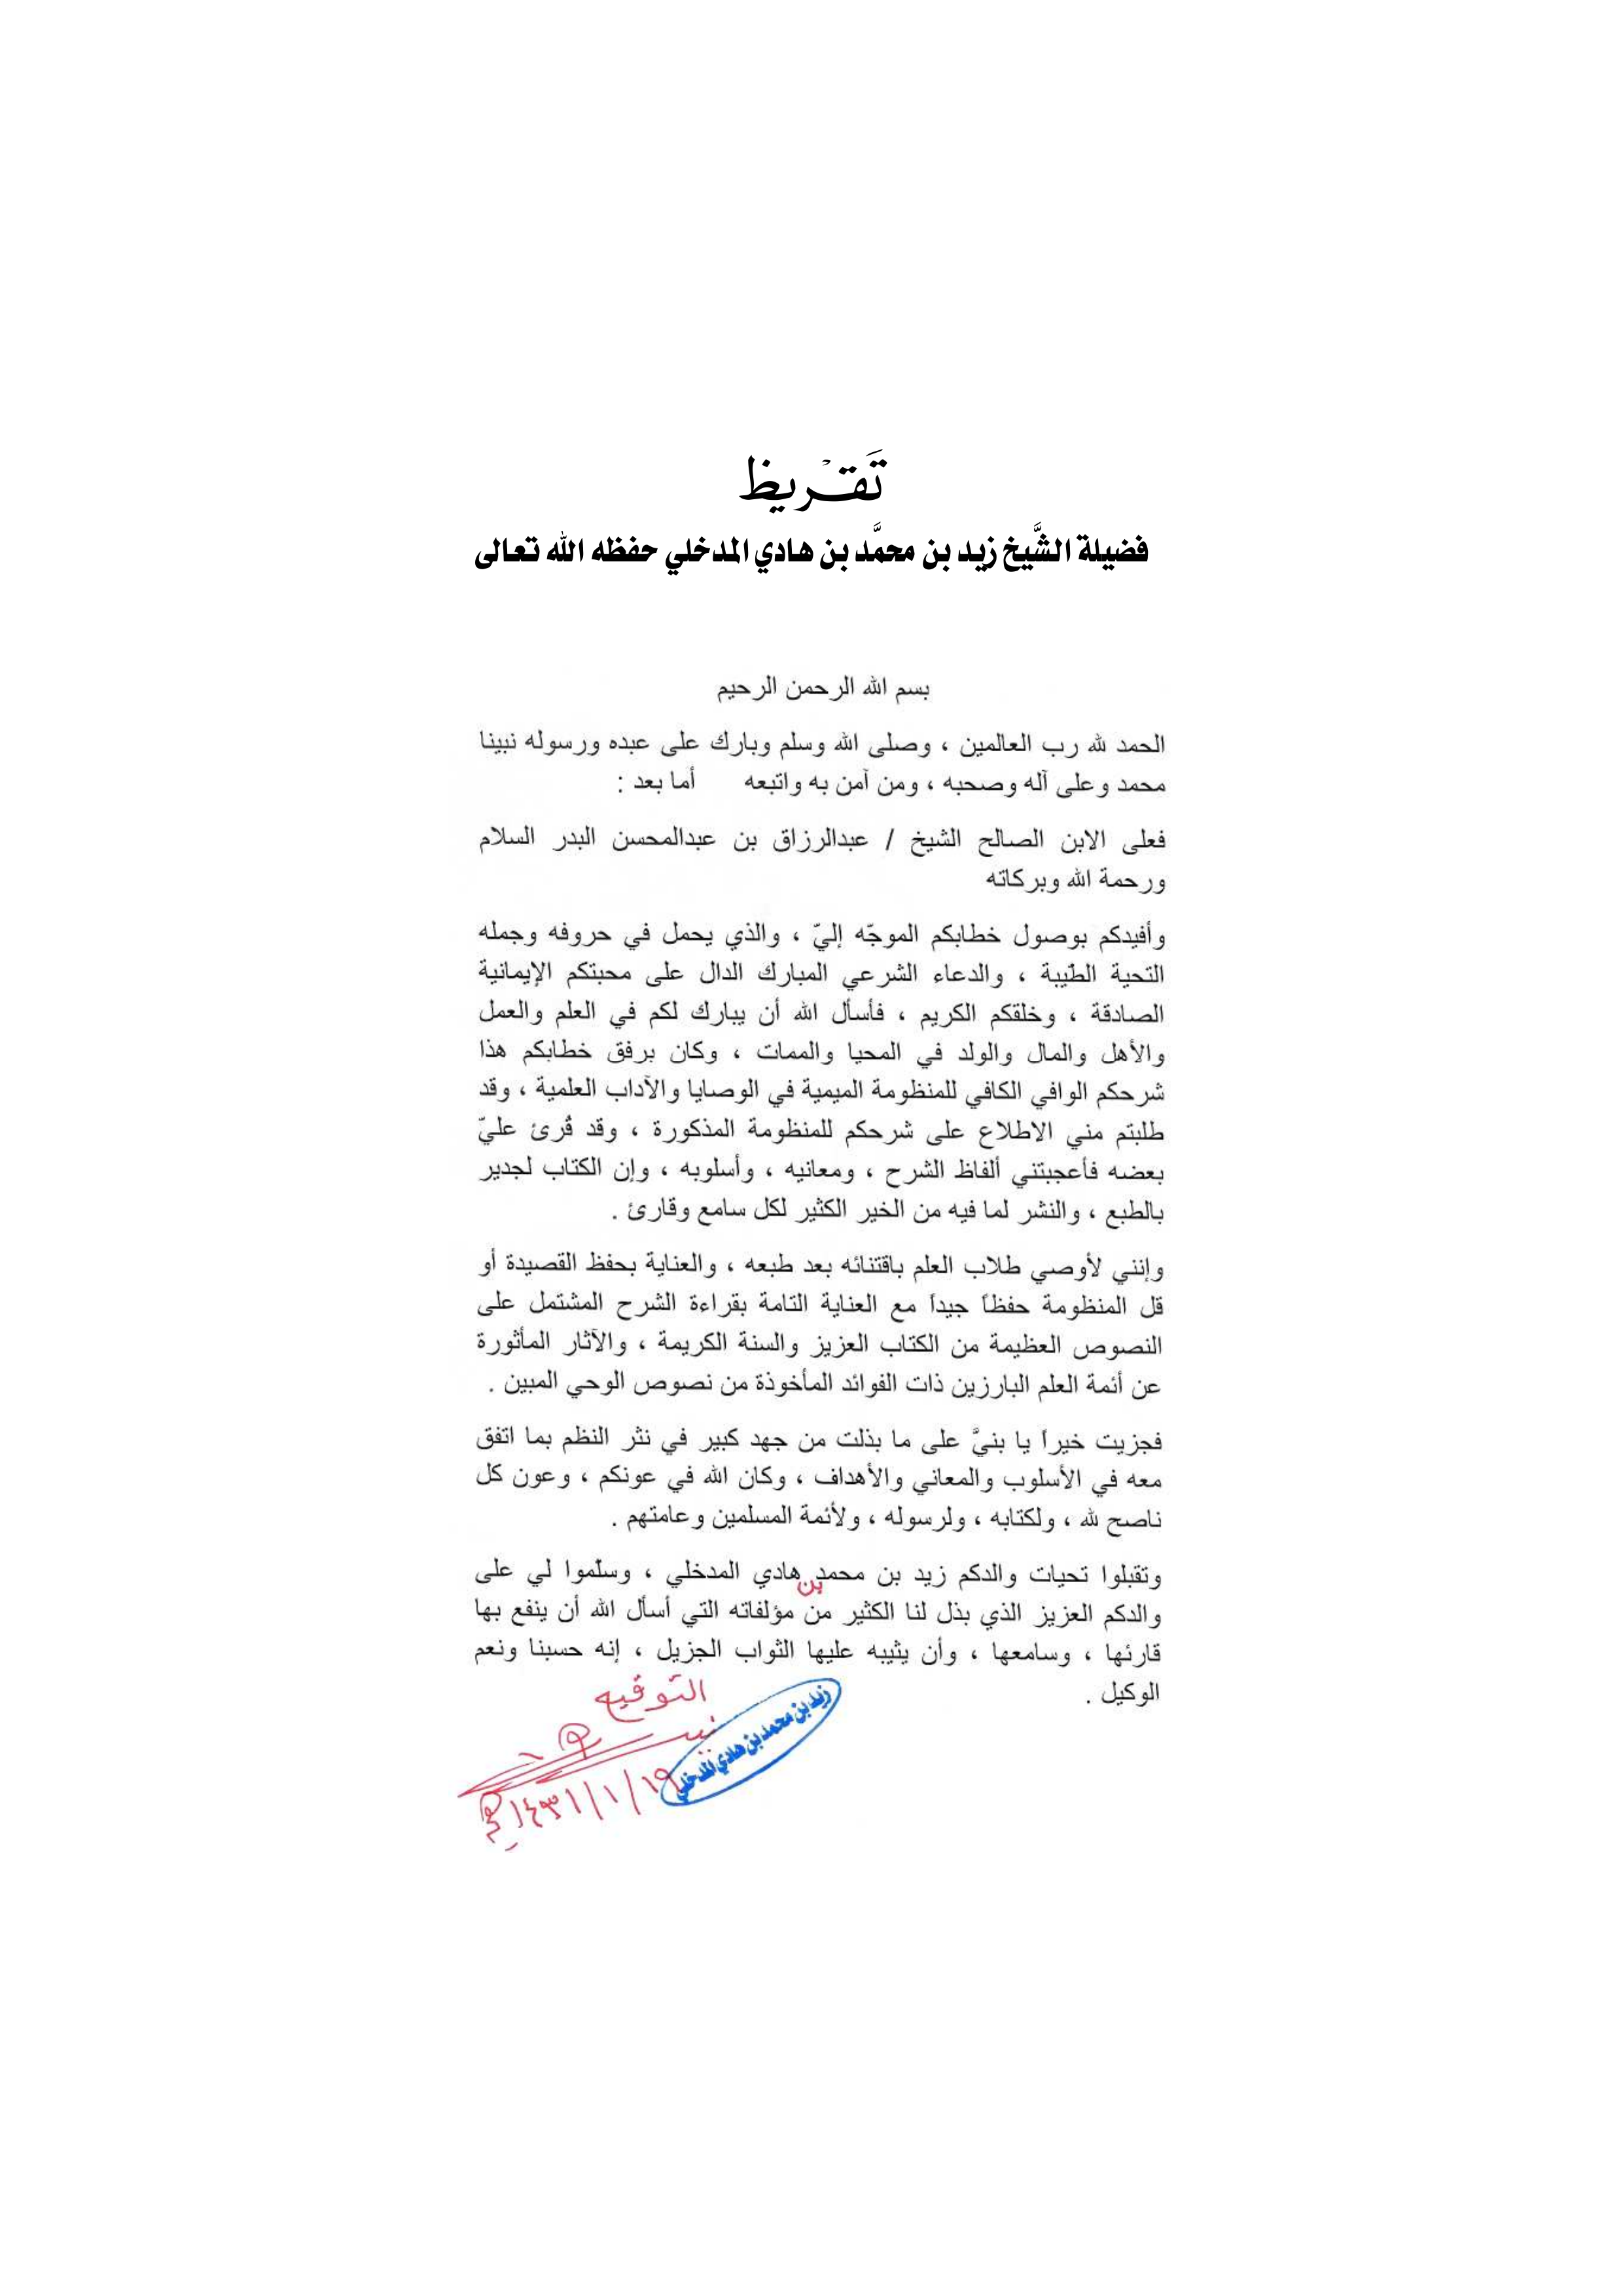 تَقْريظ
فضيلة الشَّيخ زيد بن محمَّد بن هادي المدخلي حفظه الله تعالى
بسم الله الرحمن الرحيم
الحمد لله رب العالمين ، وصلى الله وسلم وبارك على عبده ورسوله نبينا
محمد وعلى آله وصحبه ، ومن آمن به واتبعه أما بعد :
فعلى الابن الصالح الشيخ / عبدالرزاق بن عبدالمحسن البدر السلام
ورحمة الله وبركاته
وأفيدكم بوصول خطابكم الموجّه إليّ ، والذي يحمل في حروفه وجمله
التحية الطّيبة ، والدعاء الشرعي المبارك الدال على محبتكم الإيمانية
الصادقة ، وخلقكم الكريم ، فأسأل الله أن يبارك لكم في العلم والعمل
والأهل والمال والولد في المحيا والممات ، وكان برفق خطابكم هذا
شرحكم الوافي الكافي للمنظومة الميمية في الوصايا والآداب العلمية ، وقد
طلبتم مني الاطلاع على شرحكم للمنظومة المذكورة ، وقد قُرئ عليّ
بعضه فأعجبتني ألفاظ الشرح ، ومعانيه ، وأسلوبه ، وإن الكتاب لجدير
بالطبع ، والنشر لما فيه من الخير الكثير لكل سامع وقارئ .
وإنني لأوصي طلاب العلم باقتنائه بعد طبعه ، والعناية بحفظ القصيدة أو
قل المنظومة حفظاً جيداً مع العناية التامة بقراءة الشرح المشتمل على
النصوص العظيمة من الكتاب العزيز والسنة الكريمة ، والآثار المأثورة
عن أئمة العلم البارزين ذات الفوائد المأخوذة من نصوص الوحي المبين .
فجزيت خيراً يا بنيَّ على ما بذلت من جهد كبير في نثر النظم بما اتفق
معه في الأسلوب والمعاني والأهداف ، وكان الله في عونكم ، وعون كل
ناصح لله ، ولكتابه ، ولرسوله ، ولأئمة المسلمين وعامتهم .
وتقبلوا تحيات والدكم زيد بن محمد بن هادي المدخلي ، وسلّموا لي على
والدكم العزيز الذي بذل لنا الكثير من مؤلفاته التي أسأل الله أن ينفع بها
قارئها ، وسامعها ، وأن يثيبه عليها الثواب الجزيل ، إنه حسبنا ونعم
الوكيل .
التوقيع
زيد بن محمد بن هادي المدخلي
١٤٣١/١/١٩هـ